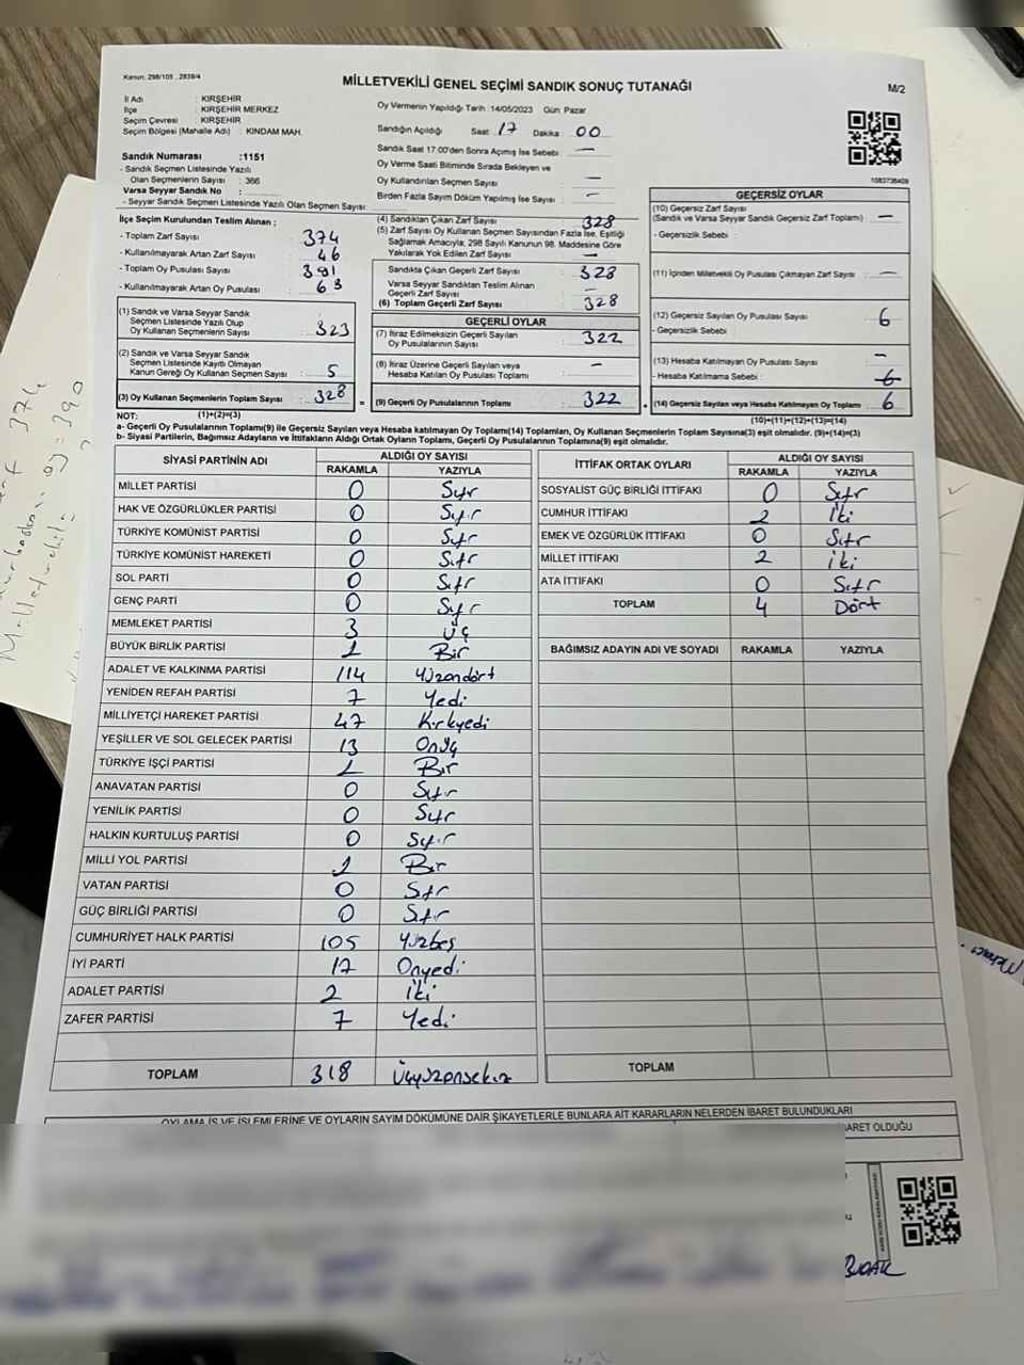 Kanun: 298/105 , 2839/4
MİLLETVEKİLİ GENEL SEÇİMİ SANDIK SONUÇ TUTANAĞI
M/2
İl Adı : KIRŞEHİR
İlçe : KIRŞEHİR MERKEZ
Seçim Çevresi : KIRŞEHİR
Seçim Bölgesi (Mahalle Adı) : KINDAM MAH.
Oy Vermenin Yapıldığı Tarih :14/05/2023 Gün: Pazar
Sandığın Açıldığı Saat : 17 Dakika : 00
Sandık Saat 17:00'den Sonra Açılmış İse Sebebi : —
Oy Verme Saati Bitiminde Sırada Bekleyen ve
Oy Kullandırılan Seçmen Sayısı : —
Birden Fazla Sayım Döküm Yapılmış İse Sayısı : —
Sandık Numarası :1151
- Sandık Seçmen Listesinde Yazılı
Olan Seçmenlerin Sayısı : 366
Varsa Seyyar Sandık No :
- Seyyar Sandık Seçmen Listesinde Yazılı Olan Seçmen Sayısı:
İlçe Seçim Kurulundan Teslim Alınan ;
- Toplam Zarf Sayısı : 374
- Kullanılmayarak Artan Zarf Sayısı : 46
- Toplam Oy Pusulası Sayısı : 391
- Kullanılmayarak Artan Oy Pusulası : 63
(1) Sandık ve Varsa Seyyar Sandık
Seçmen Listesinde Yazılı Olup
Oy Kullanan Seçmenlerin Sayısı : 323
(2) Sandık ve Varsa Seyyar Sandık
Seçmen Listesinde Kayıtlı Olmayan
Kanun Gereği Oy Kullanan Seçmen Sayısı : 5
(3) Oy Kullanan Seçmenlerin Toplam Sayısı : 328
(1)+(2)=(3)
(4) Sandıktan Çıkan Zarf Sayısı : 328
(5) Zarf Sayısı Oy Kullanan Seçmen Sayısından Fazla İse, Eşitliği
Sağlamak Amacıyla; 298 Sayılı Kanunun 98. Maddesine Göre
Yakılarak Yok Edilen Zarf Sayısı : —
Sandıkta Çıkan Geçerli Zarf Sayısı : 328
Varsa Seyyar Sandıktan Teslim Alınan
Geçerli Zarf Sayısı : —
(6) Toplam Geçerli Zarf Sayısı : 328
GEÇERLİ OYLAR
(7) İtiraz Edilmeksizin Geçerli Sayılan
Oy Pusulalarının Sayısı : 322
(8) İtiraz Üzerine Geçerli Sayılan veya
Hesaba Katılan Oy Pusulası Toplamı : —
= (9) Geçerli Oy Pusulalarının Toplamı : 322
1083736409
GEÇERSİZ OYLAR
(10) Geçersiz Zarf Sayısı
(Sandık ve Varsa Seyyar Sandık Geçersiz Zarf Toplamı) : —
- Geçersizlik Sebebi :
(11) İçinden Milletvekili Oy Pusulası Çıkmayan Zarf Sayısı : —
(12) Geçersiz Sayılan Oy Pusulası Sayısı : 6
- Geçersizlik Sebebi :
(13) Hesaba Katılmayan Oy Pusulası Sayısı : —
- Hesaba Katılmama Sebebi : 6
+ (14) Geçersiz Sayılan veya Hesaba Katılmayan Oy Toplamı : 6
(10)+(11)+(12)+(13)=(14)
NOT:
a- Geçerli Oy Pusulalarının Toplamı(9) ile Geçersiz Sayılan veya Hesaba katılmayan Oy Toplamı(14) Toplamları, Oy Kullanan Seçmenlerin Toplam Sayısına(3) eşit olmalıdır. (9)+(14)=(3)
b- Siyasi Partilerin, Bağımsız Adayların ve İttifakların Aldığı Ortak Oyların Toplamı, Geçerli Oy Pusulalarının Toplamına(9) eşit olmalıdır.
SİYASİ PARTİNİN ADI ALDIĞI OY SAYISI
RAKAMLA YAZIYLA
MİLLET PARTİSİ 0 Sıfır
HAK VE ÖZGÜRLÜKLER PARTİSİ 0 Sıfır
TÜRKİYE KOMÜNİST PARTİSİ 0 Sıfır
TÜRKİYE KOMÜNİST HAREKETİ 0 Sıfır
SOL PARTİ 0 Sıfır
GENÇ PARTİ 0 Sıfır
MEMLEKET PARTİSİ 3 Üç
BÜYÜK BİRLİK PARTİSİ 1 Bir
ADALET VE KALKINMA PARTİSİ 114 Yüzondört
YENİDEN REFAH PARTİSİ 7 Yedi
MİLLİYETÇİ HAREKET PARTİSİ 47 Kırkyedi
YEŞİLLER VE SOL GELECEK PARTİSİ 13 Onüç
TÜRKİYE İŞÇİ PARTİSİ 1 Bir
ANAVATAN PARTİSİ 0 Sıfır
YENİLİK PARTİSİ 0 Sıfır
HALKIN KURTULUŞ PARTİSİ 0 Sıfır
MİLLİ YOL PARTİSİ 1 Bir
VATAN PARTİSİ 0 Sıfır
GÜÇ BİRLİĞİ PARTİSİ 0 Sıfır
CUMHURİYET HALK PARTİSİ 105 Yüzbeş
İYİ PARTİ 17 Onyedi
ADALET PARTİSİ 2 İki
ZAFER PARTİSİ 7 Yedi
TOPLAM 318 Üçyüzonsekiz
İTTİFAK ORTAK OYLARI ALDIĞI OY SAYISI
RAKAMLA YAZIYLA
SOSYALİST GÜÇ BİRLİĞİ İTTİFAKI 0 Sıfır
CUMHUR İTTİFAKI 2 İki
EMEK VE ÖZGÜRLÜK İTTİFAKI 0 Sıfır
MİLLET İTTİFAKI 2 İki
ATA İTTİFAKI 0 Sıfır
TOPLAM 4 Dört
BAĞIMSIZ ADAYIN ADI VE SOYADI RAKAMLA YAZIYLA
TOPLAM
OYLAMA İŞ VE İŞLEMLERİNE VE OYLARIN SAYIM DÖKÜMÜNE DAİR ŞİKAYETLERLE BUNLARA AİT KARARLARIN NELERDEN İBARET BULUNDUKLARI
ARET OLDUĞU